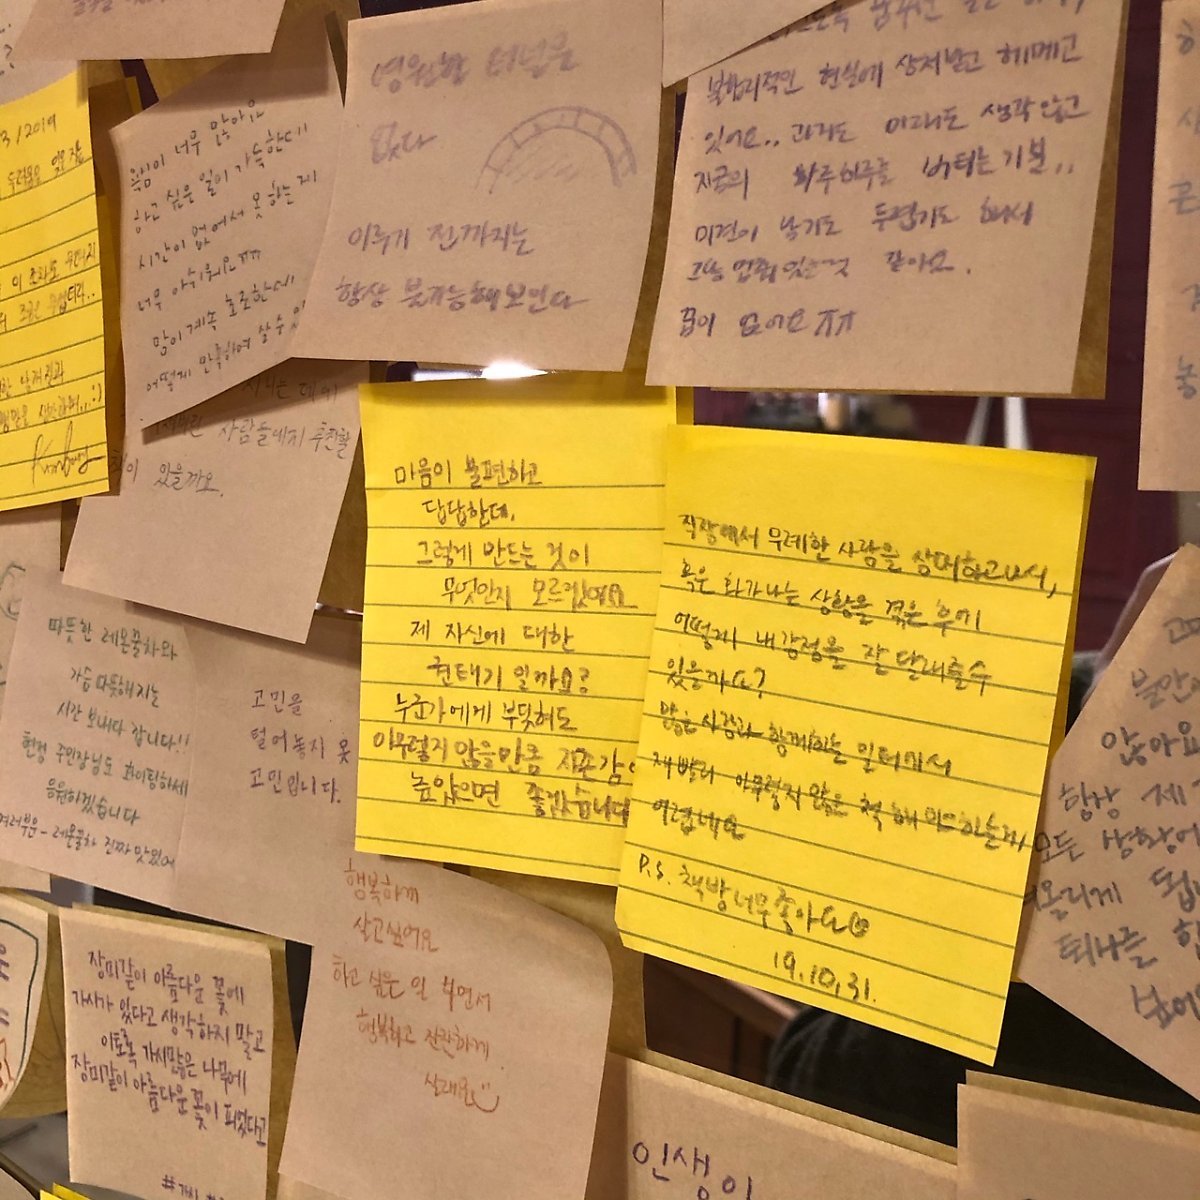 3/2019
욕심이 너무 많아요
하고 싶은 일이 가득한데
시간이 없어서 못 하는게
너무 아쉬워요ㅠㅠ
맘이 계속 초조한데
어떻게 만족하며 살 수 있
영원한 터널은
없다
이루기 전까지는
항상 불가능해보인다
불합리적인 현실에 상처받고 헤메고
있어요.. 과거도 미래도 생각않고
지금의 하루하루를 버티는 기분..
미련이 남기도 두렵기도 해서
그냥 멈춰있는것 같아요.
꿈이 없어요ㅠㅠ
사람들에게 추천할
책이 있을까요.
마음이 불편하고
답답한데,
그렇게 만드는 것이
무엇인지 모르겠어요
제 자신에 대한
권태기 일까요?
누군가에게 부딪혀도
아무렇지 않을만큼 자존감이
높았으면 좋겠습니다
직장에서 무례한 사람을 상대하고나서,
혹은 화가나는 상황을 겪은 후에
어떻게 내감정을 잘 달래줄수
있을까요?
많은 사람과 함께하는 일터에서
재빨리 아무렇지 않은 척 해야하는게,
어렵네요
P.S. 책방너무좋아요
19.10.31.
따뜻한 레몬꿀차와
가슴따뜻해지는
시간 보내다 갑니다!!
헌정 주인장님도 화이팅하세
응원하겠습니다
여러부운~ 레몬꿀차 진짜맛있어
고민을
털어놓지 못
고민입니다.
행복하게
살고싶어요
하고 싶은 일 하면서
행복하고 잔잔하게
살래요
장미같이 아름다운 꽃에
가시가 있다고 생각하지 말고
이토록 가시많은 나무에
장미같이 아름다운 꽃이 피었다고
인생이
불안
않아요
항상 제
모든 상황에